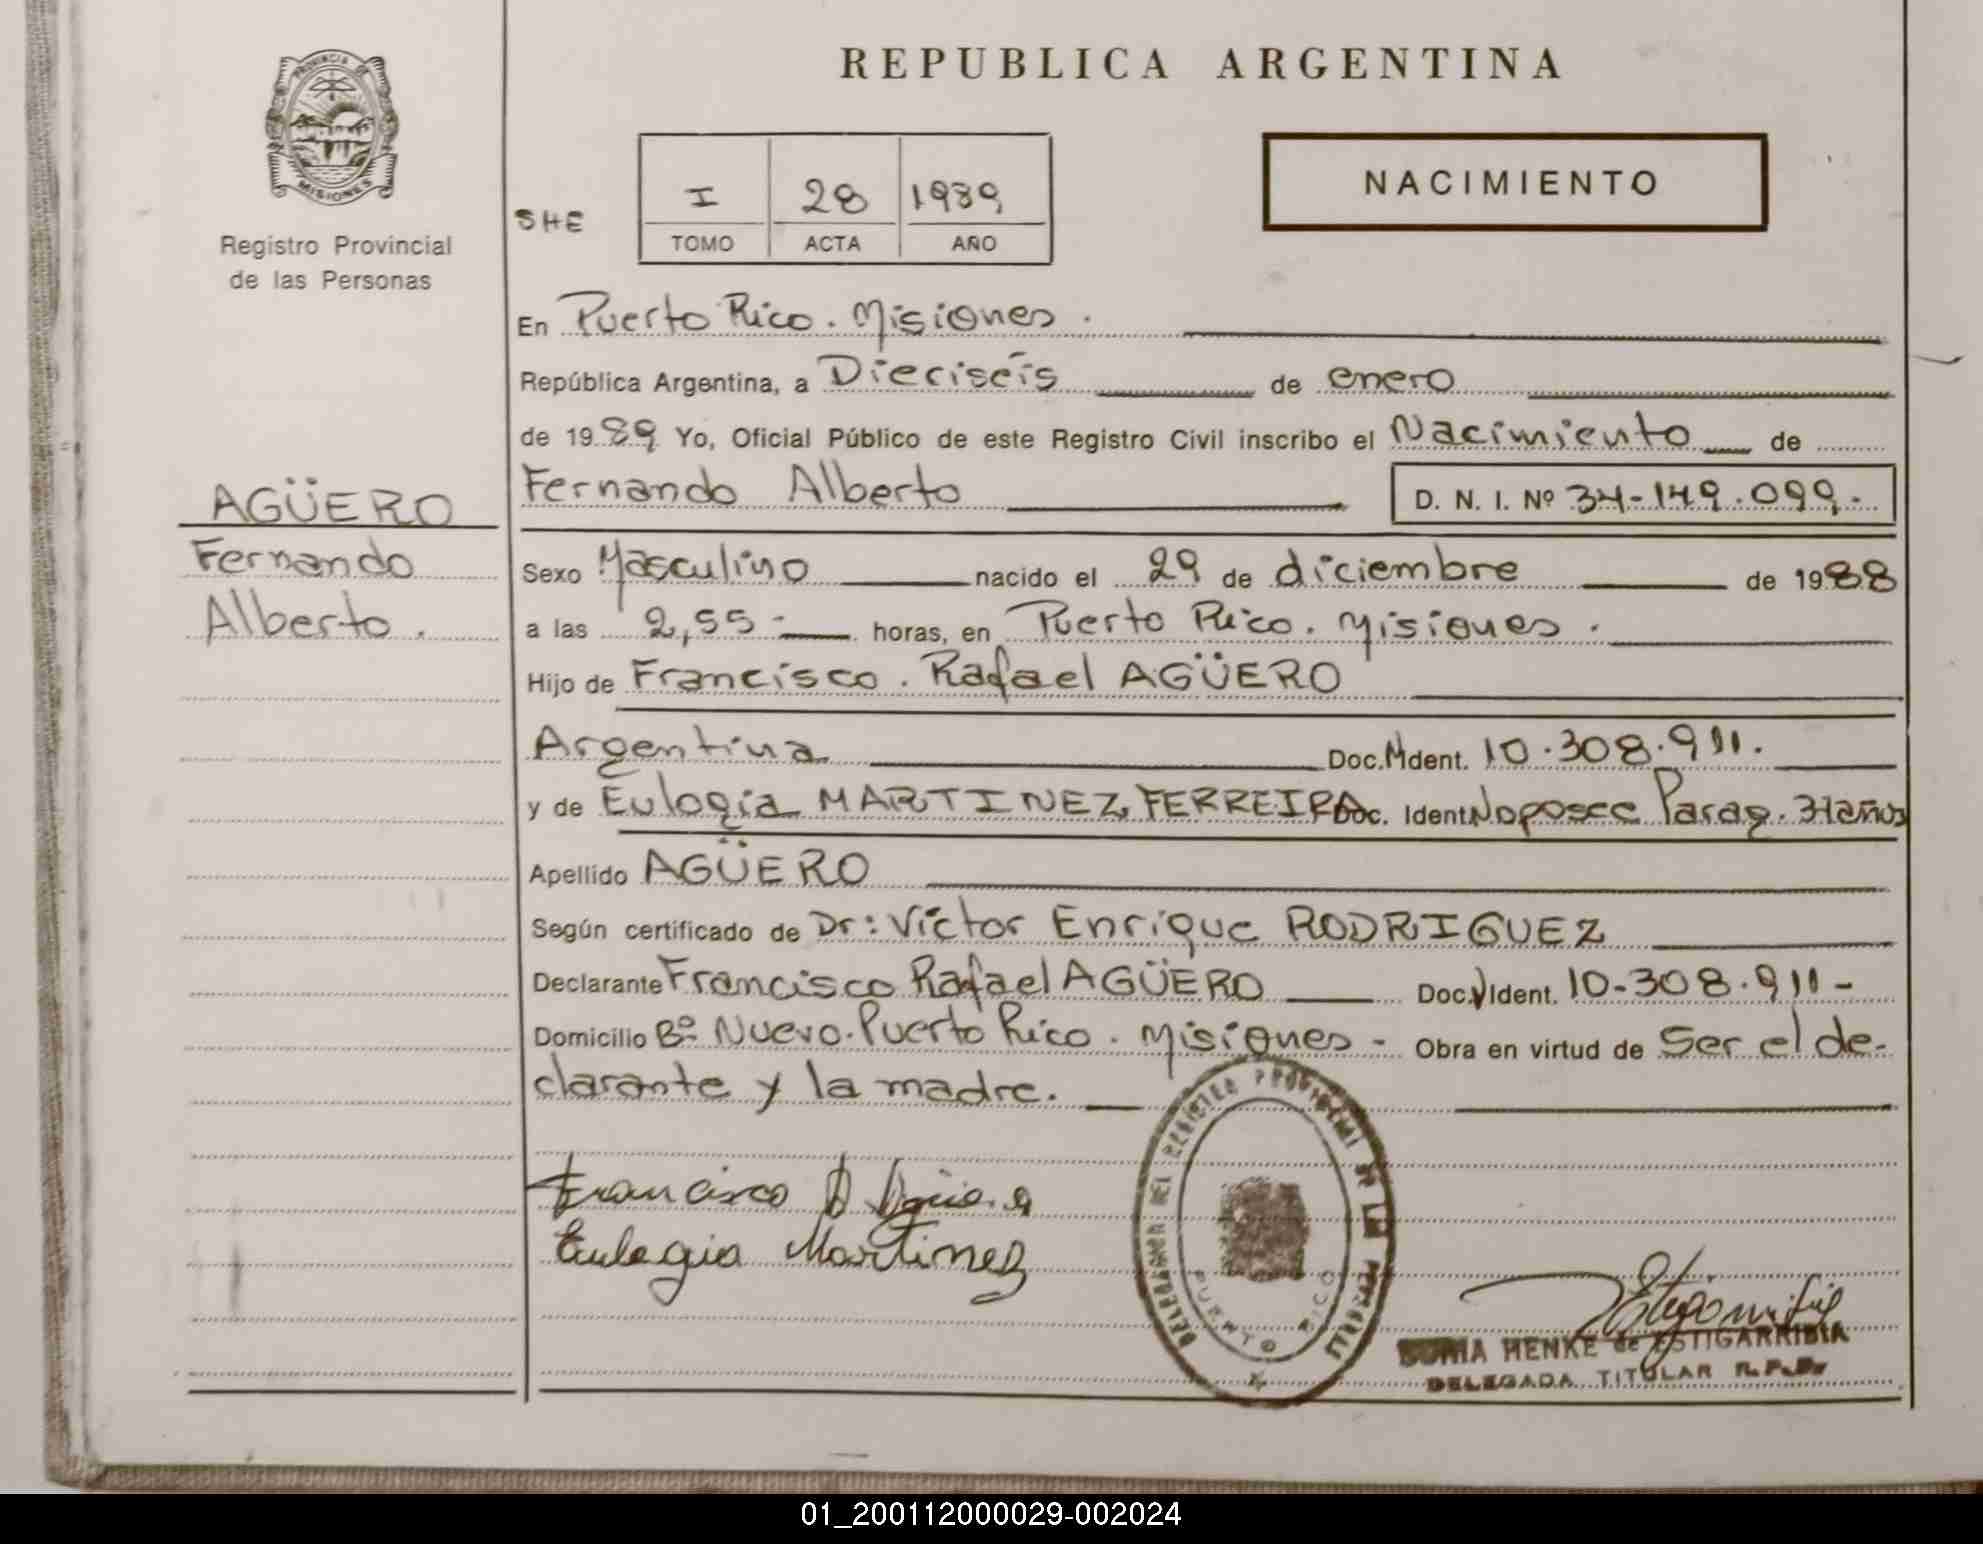 PROVINCIA DE
MISIONES
Registro Provincial
de las Personas
AGÜERO
Fernando
Alberto.
REPUBLICA ARGENTINA
NACIMIENTO
SHE
I 28 1989
TOMO ACTA AÑO
En Puerto Rico. Misiones.
República Argentina, a Dieciseis de enero
de 1989 Yo, Oficial Público de este Registro Civil inscribo el Nacimiento de
Fernando Alberto D. N. I. Nº 34-149.099.-
Sexo Masculino nacido el 29 de diciembre de 1988
a las 2,55- horas, en Puerto Rico. Misiones.
Hijo de Francisco. Rafael AGÜERO
Argentina Doc. M Ident. 10.308.911.
y de Eulogia MARTINEZ FERREIRA Doc. Ident. No posee Parag. 31 años
Apellido AGÜERO
Según certificado de Dr: Victor Enrique RODRIGUEZ
Declarante Francisco Rafael AGÜERO Doc. Ident. 10-308.911-
Domicilio Bº Nuevo. Puerto Rico. Misiones - Obra en virtud de Ser el de-
clarante y la madre.
Francisco
Eulogia Martinez
DELEGACION DEL REGISTRO PROVINCIAL DE LAS PERSONAS
PUERTO RICO
HENKE de ESTIGARRIBIA
DELEGADA TITULAR R.P.P.
01_200112000029-002024